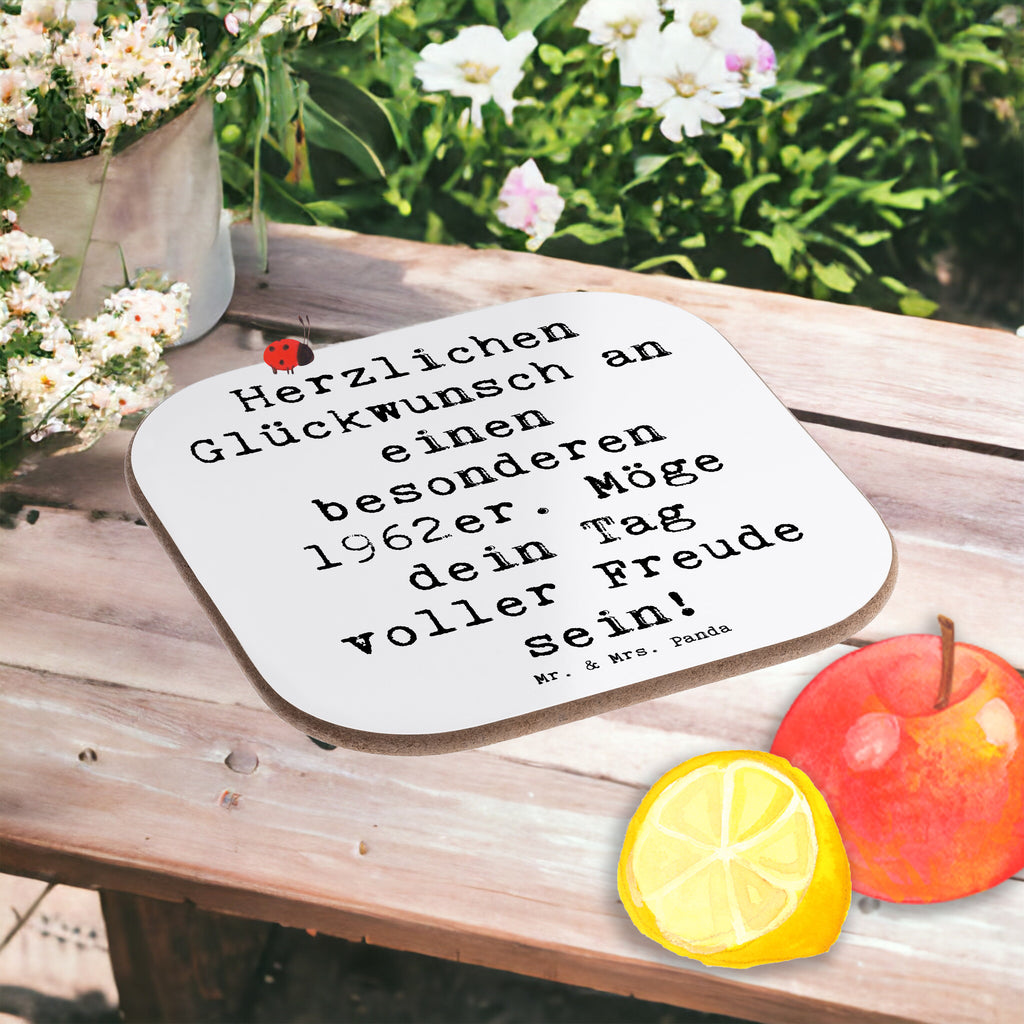 Herzlichen
Glückwunsch an
einen
besonderen
1962er. Möge
dein Tag
voller Freude
sein!
Mr. & Mrs. Panda